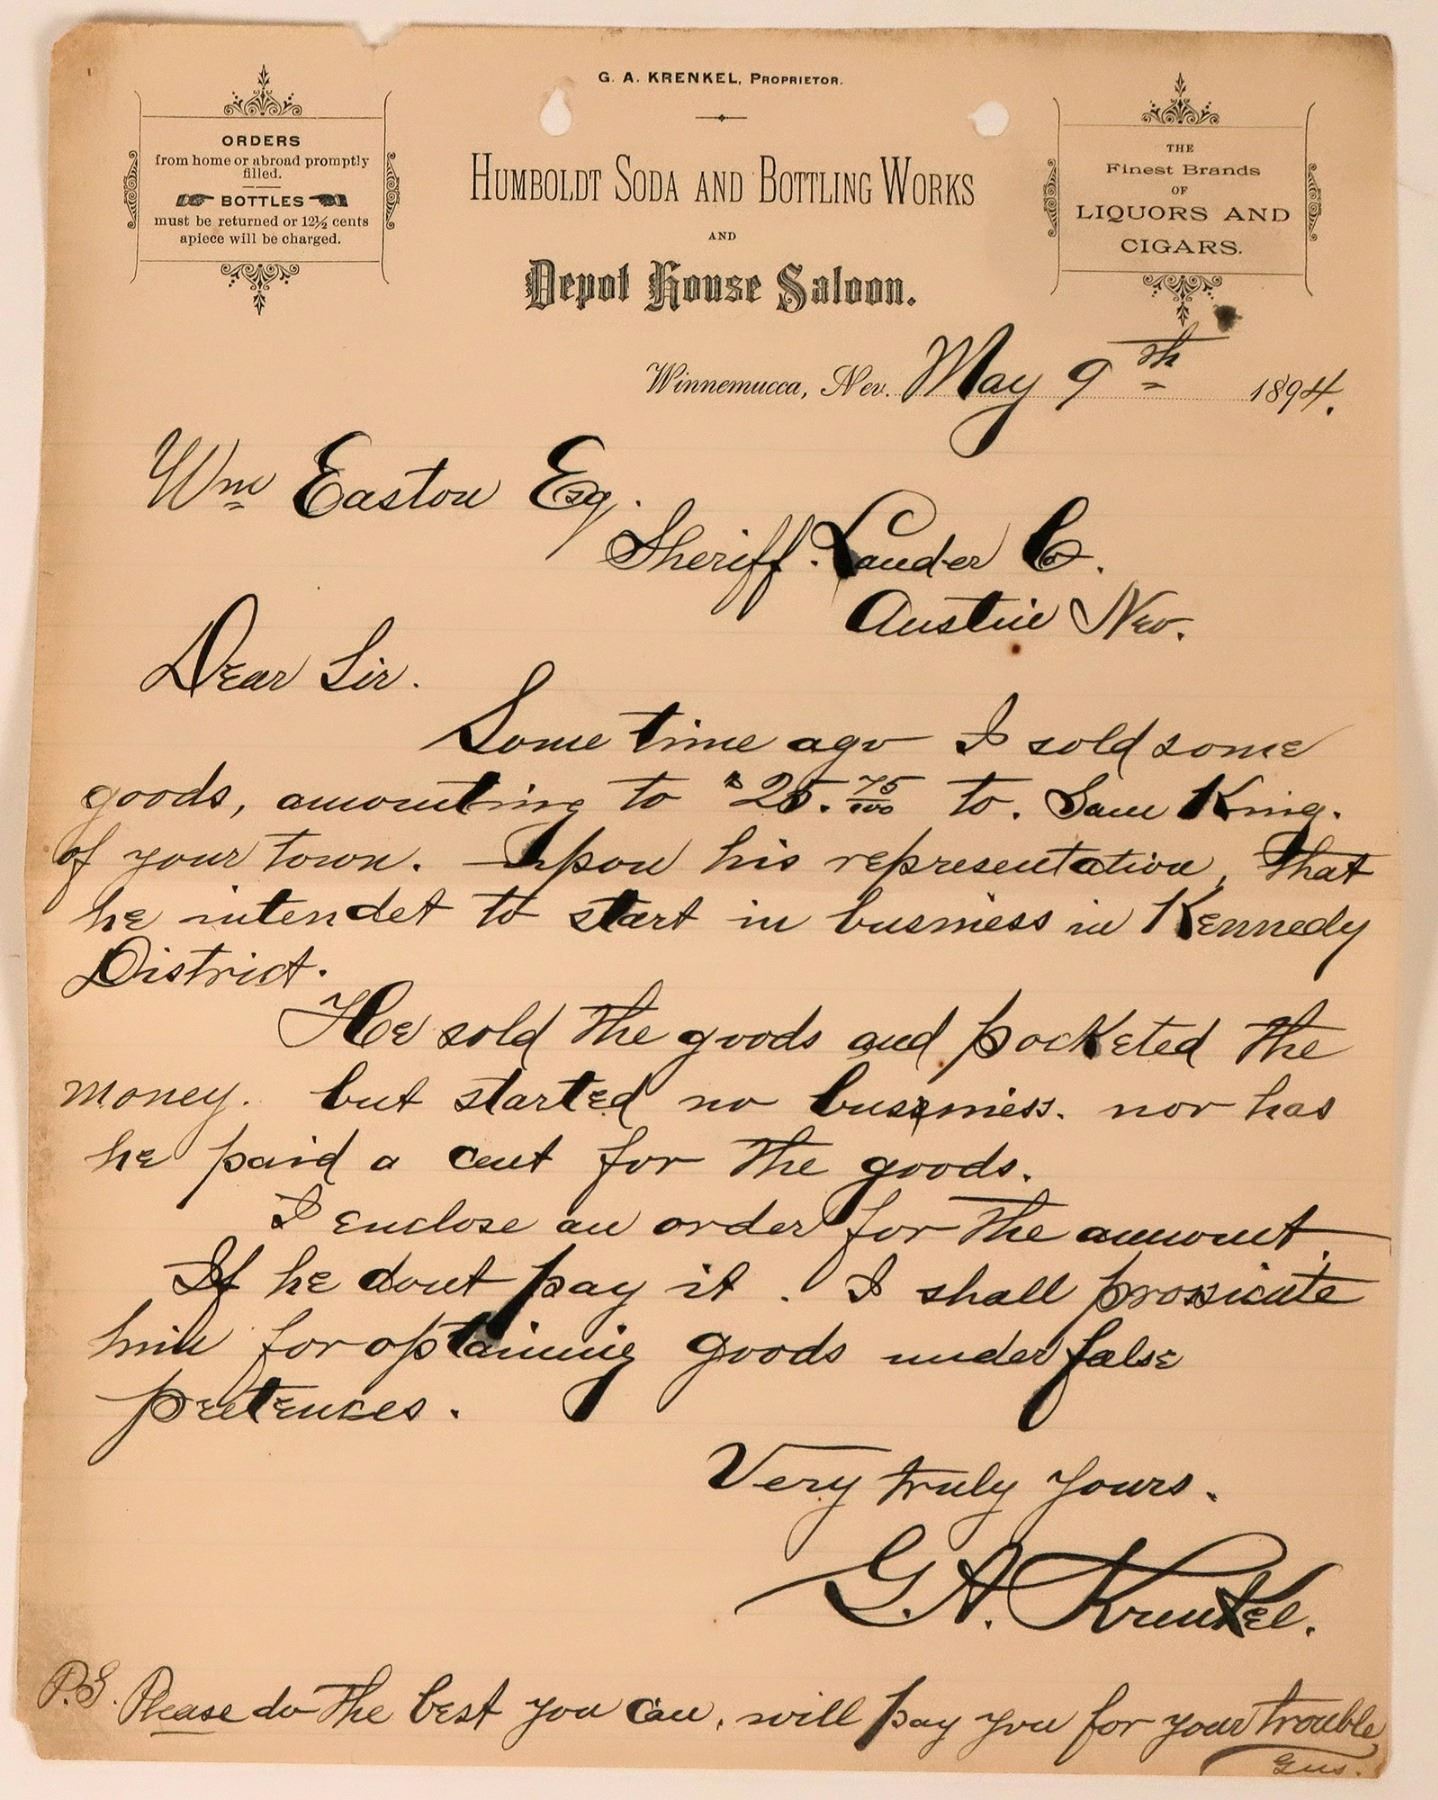 G. A. KRENKEL, PROPRIETOR.
ORDERS
from home or abroad promptly
filled.
BOTTLES
must be returned or 12½ cents
apiece will be charged.
HUMBOLDT SODA AND BOTTLING WORKS
AND
Depot House Saloon.
THE
Finest Brands
OF
LIQUORS AND
CIGARS.
Winnemucca, Nev. May 9th 1894.
Wm Easton Esq.
Sheriff. Lander Co.
Austin Nev.
Dear Sir.
Some time ago I sold some
goods, amounting to $25.75/100 to. Sam King.
of your town. Upon his representation, that
he intendet to start in business in Kennedy
District.
He sold the goods and pocketed the
money. but started no bussiness. nor has
he paid a cent for the goods.
I enclose an order for the amount.
If he dont pay it. I shall prossicute
him for optaining goods under false
pretences.
Very truly yours.
G. A. Krenkel.
P.S. Please do the best you can, will pay you for your trouble
Gus.